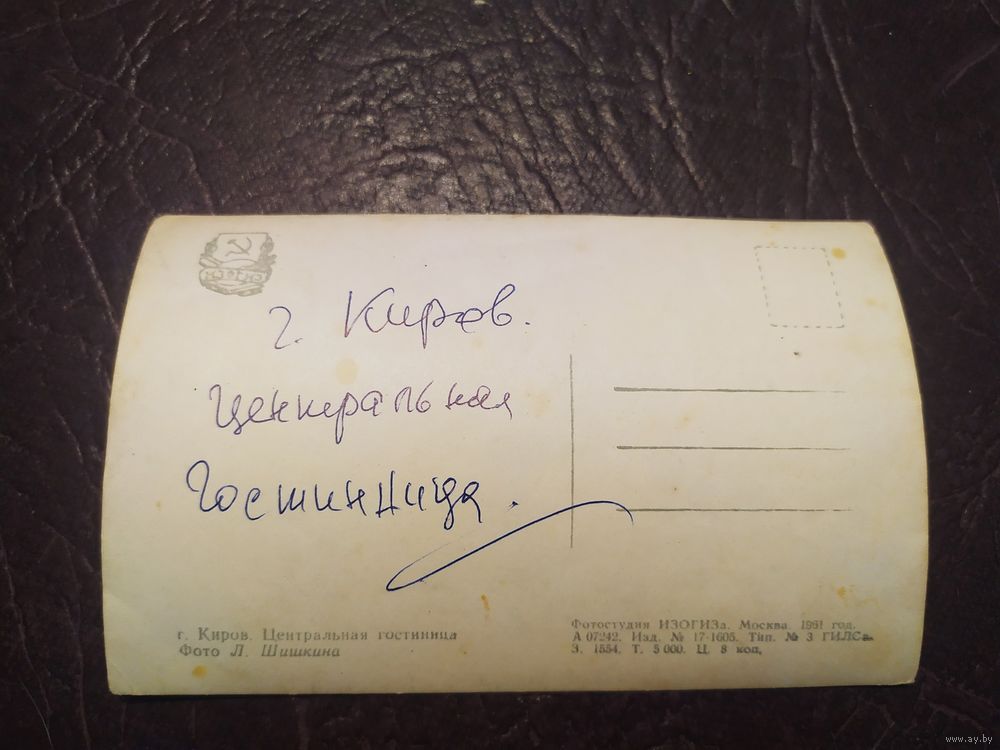 ИЗОГИЗ
г. Киров.
Центральная
Гостинница.
г. Киров. Центральная гостиница
Фото Л. Шишкина
Фотостудия ИЗОГИЗа. Москва. 1961 год.
А 07242. Изд. № 17-1605. Тип. № 3 ГИЛСа.
З. 1554. Т. 5 000. Ц. 8 коп.
www.ay.by